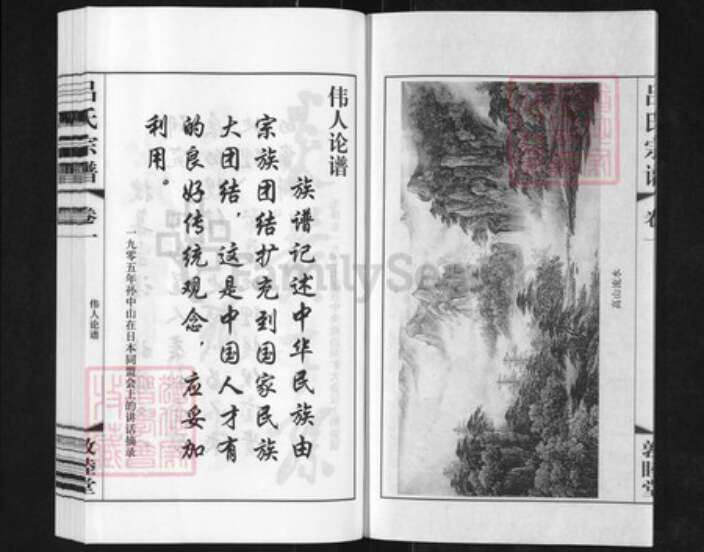 吕氏宗谱
卷一
高山流水
敦睦堂
伟人论谱
族谱记述中华民族由
宗族团结扩充到国家民族
大团结，这是中国人才有
的良好传统观念，应妥加
利用。
一九零五年孙中山在日本同盟会上的讲话摘录
吕氏宗谱
卷一
伟人论谱
敦睦堂
FamilySearch